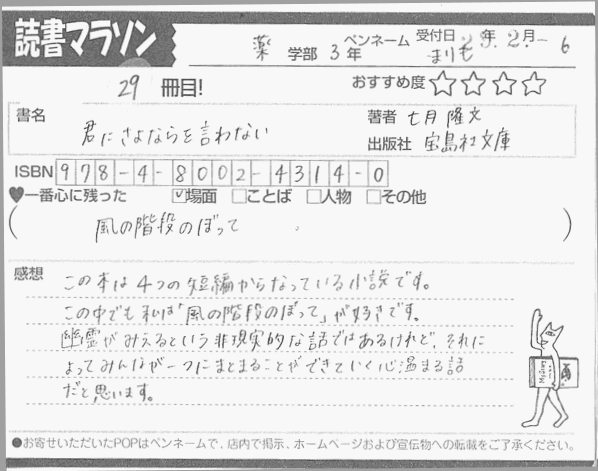 読書マラソン
薬 学部 3年 ペンネーム まりも 受付日 23年 2月 6
29 冊目!
おすすめ度 ☆☆☆☆
書名 君にさよならを言わない
著者 七月隆文
出版社 宝島社文庫
ISBN 978-4-8002-4314-0
♥一番心に残った ☑場面 □ことば □人物 □その他
( 風の階段のぼって )
感想
この本は4つの短編からなっている小説です。
この中でも私は「風の階段のぼって」が好きです。
幽霊がみえるという非現実的な話ではあるけれど、それに
よってみんなが一つにまとまることができていく心温まる話
だと思います。
●お寄せいただいたPOPはペンネームで、店内で掲示、ホームページおよび宣伝物への転載をご了承ください。